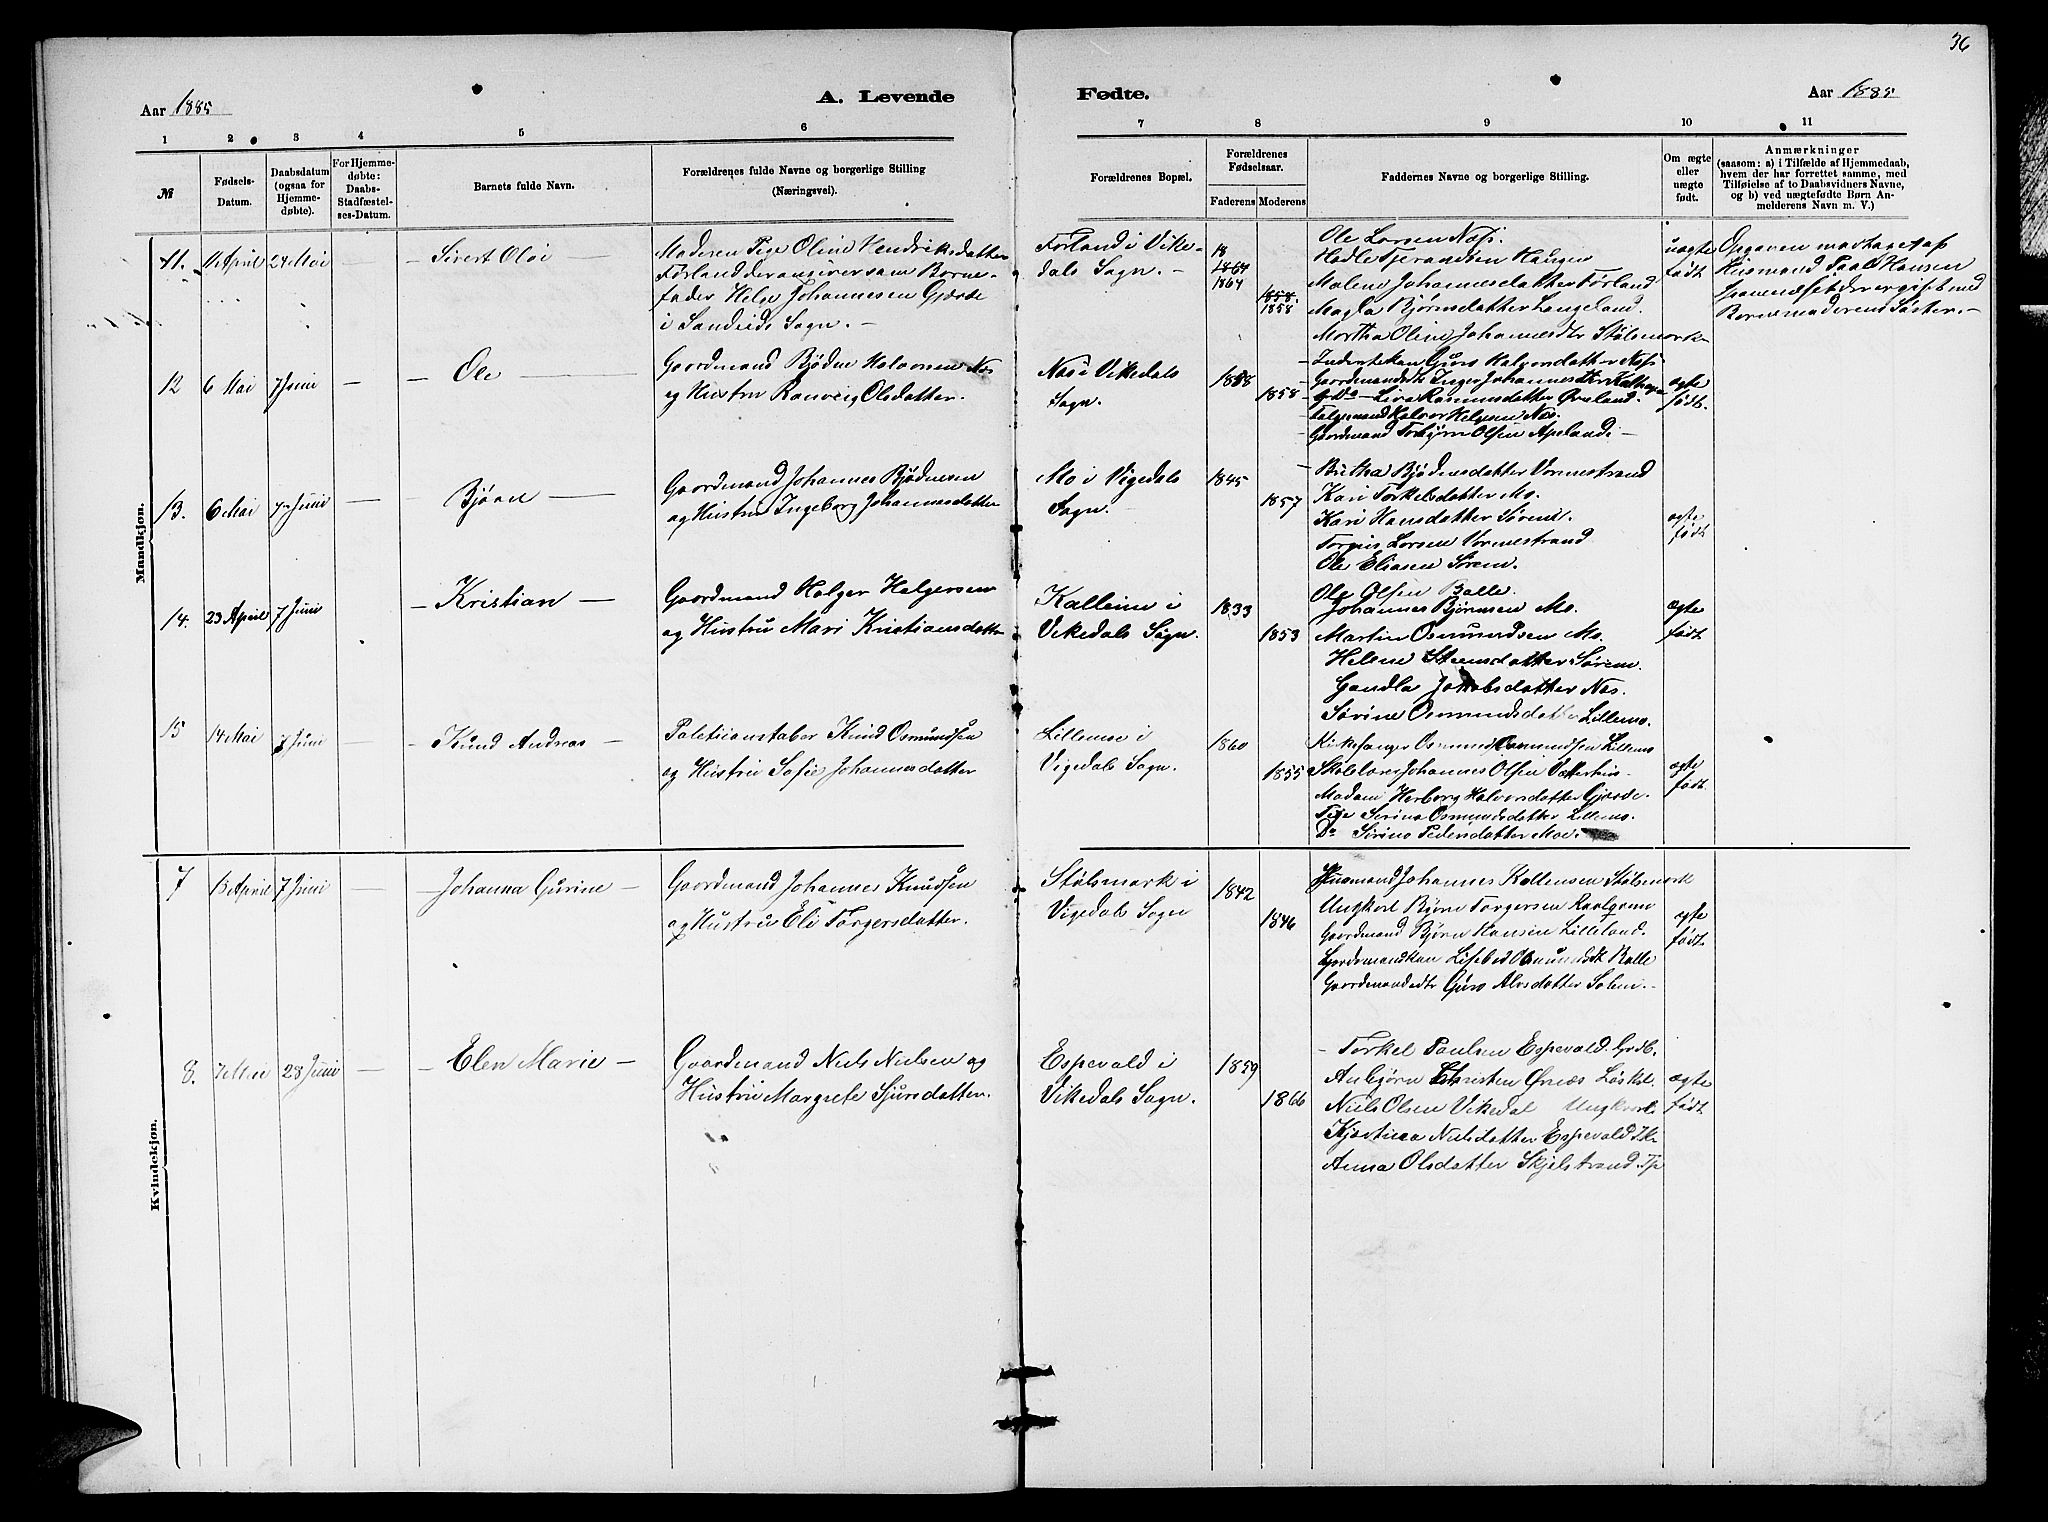 36
Aar 1885
A. Levende
Fødte.
Aar 1885
1 2 3 4 5 6 7 8 9 10 11
№
Fødsels-Datum.
Daabsdatum (ogsaa for Hjemmedøbte).
For Hjemmedøbte: Daabs-Stadfæstelses-Datum.
Barnets fulde Navn.
Forældrenes fulde Navne og borgerlige Stilling
(Næringsvei).
Forældrenes Bopæl.
Forældrenes Fødselsaar.
Faderens Moderens
Faddernes Navne og borgerlige Stilling.
Om ægte eller uægte født.
Anmærkninger
(saasom: a) i Tilfælde af Hjemmedaab,
hvem der har forrettet samme, med
Tilføielse af to Daabsvidners Navne,
og b) ved uægtefødte Børn Anmelderens Navn m. V.)
Mandkjøn.
11. 11 April 24 Mai – Sivert Olai –
Moderen Pige Oline Hendriksdatter
Førland der angiver som Barne-
fader Helge Johannesen Gjærde
i Sandeids Sogn. –
Førland i Vike-
dals Sogn. –
18
1864
1864
1858.
1858
Ole Larsen Næs.
Malene Johannesdatter Førland
Magla Bjørnsdatter Langeland.
Martha Oline Johannesdtr Stølsmark
uægte
født
Opgaven modtaget af
Husmand Paal Hansen
der er gift med
Barnemoderens Søster. –
12 6 Mai 7 Juni – – Ole –
Gaardmand Bjødne Halvorsen Næs
og Hustru Ranveig Olsdatter.
Næs i Vikedals
Sogn.
1858
1858
Guro Halvorsdatter Næs
Liva Rasmusdatter Ørnland.
Halvor Helgesen Næs.
Gaardmand Torbjørn Olsen Apeland. –
ægte
født.
13. 6 Mai 7 Juni – – Bjørn –
Gaardmand Johannes Bjødnesen
og Hustru Ingeborg Johannesdatter
Mo i Vigedals
Sogn.
1845
1857
– Britha Bjødnesdatter Vormestrand
Kari Torkelsdatter Mo.
Kari Hansdatter Sørem.
Torgius Larsen Vormestrand
Ole Eliasen Sørem.
ægte
født
14. 23 April 7 Juni – Kristian –
Gaardmand Holger Holgersen
og Hustru Mari Kristiansdatter
Kalleim i
Vikedals Sogn.
1833
1853
Ole Olsen Balle.
Johannes Bjørnsen Mo.
Martin Osmundsen Mo.
Helene Steensdatter Sørem.
Gundla Jakobsdatter Næs.
Sørine Osmundsdatter Lillemo.
ægte
født
15 14 Mai 7 Juni – – Knud Andreas –
Knud Osmundsen
og Hustru Sofie Johannesdatter
Lillemoe i
Vigedals Sogn.
1860
1855
Kirkesanger Osmund Osmundsen Lillemo
Johannes Olsen
Madam Herborg Halvorsdatter Gjærde.
Pige Serina Osmundsdatter Lillemo.
Do Serina Pedersdatter Moe.
ægte
født.
Kvindekjøn.
7 13 April 7 Juni – – Johanna Gurine –
Gaardmand Johannes Knudsen
og Hustru Eli Torgersdatter.
Stølsmark i
Vigedals Sogn
1842
1846
Husmand Johannes Stølsmark
Ungkarl Bjørn Torgersen
Gaardmand Bjørn Hansen Lilleland.
Gaardmandkon Lisebed Osmundsdt Balle
Guro Alvsdatter
ægte
født.
8. 7 Mai 28 Juni – – Elen Marie –
Gaardmand Niels Nielsen og
Hustru Margrete Sjursdatter.
Espevald i
Vikedals Sogn.
1859
1866
– Torkel Paulsen Espevold. Grdb.
Niels Olsen Vikedal Ungkarl.
Kjerstina Nielsdatter Espevold
Anna Olsdatter Skjelstrand
ægte
født